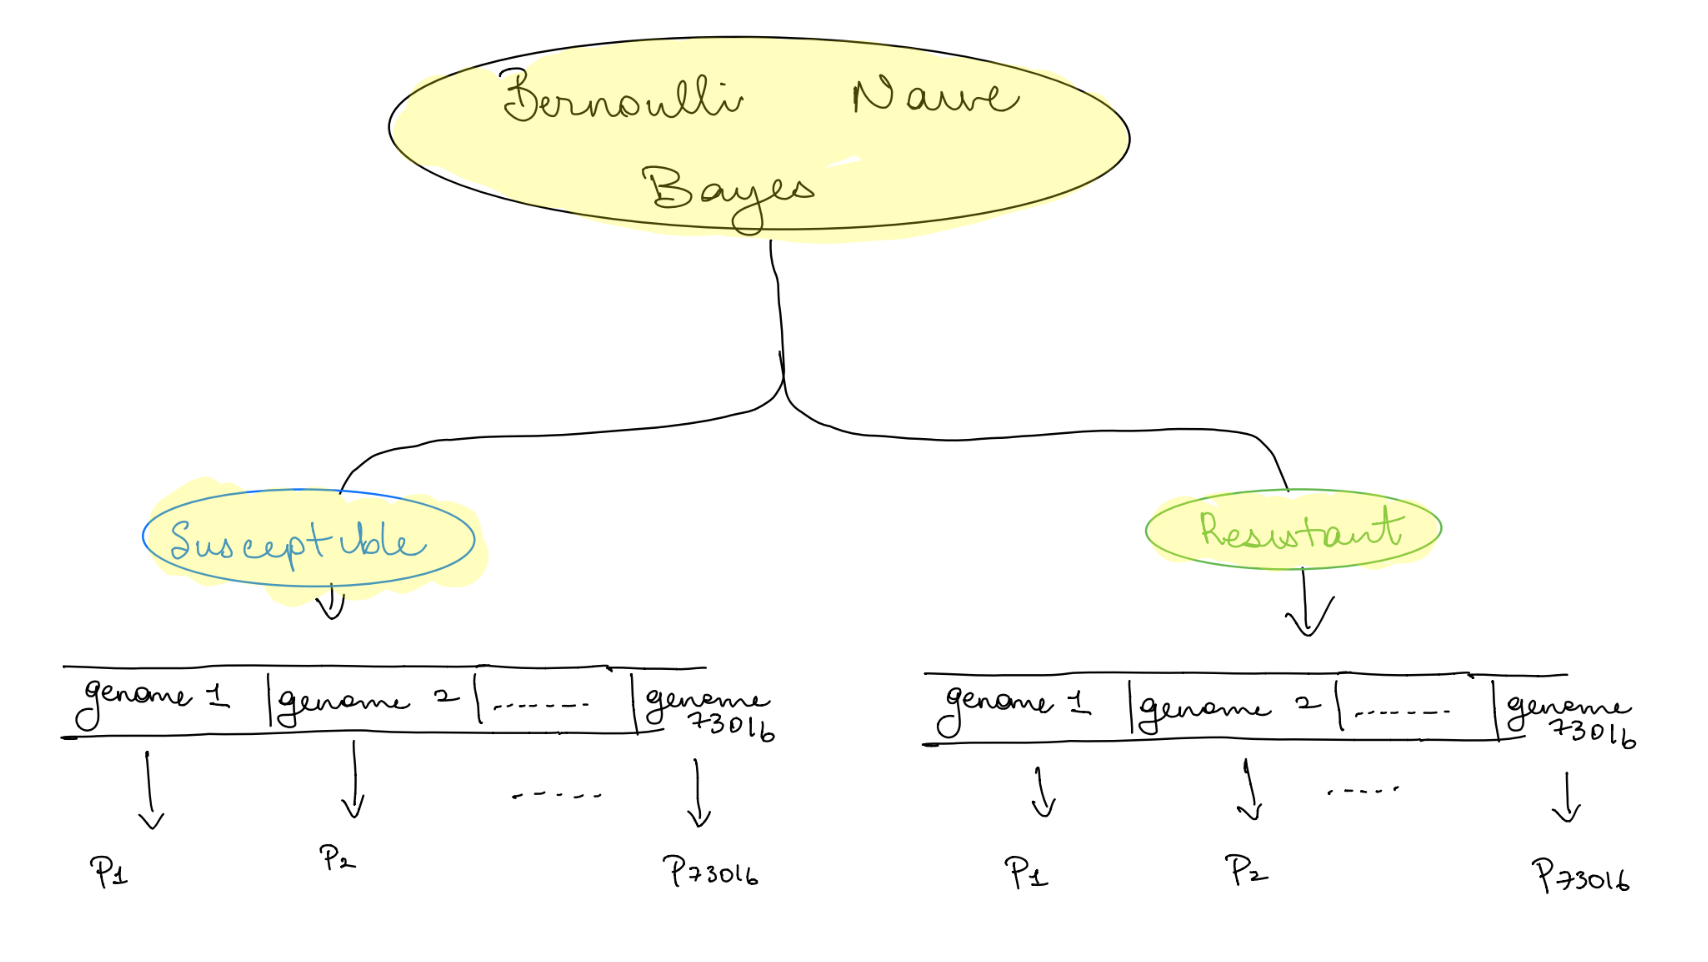 Bernoulli Naive
Bayes
Susceptible
Resistant
genome 1 genome 2 ....... genome
73016
genome 1 genome 2 ....... genome
73016
.....
.....
P1 P2 P73016
P1 P2 P73016